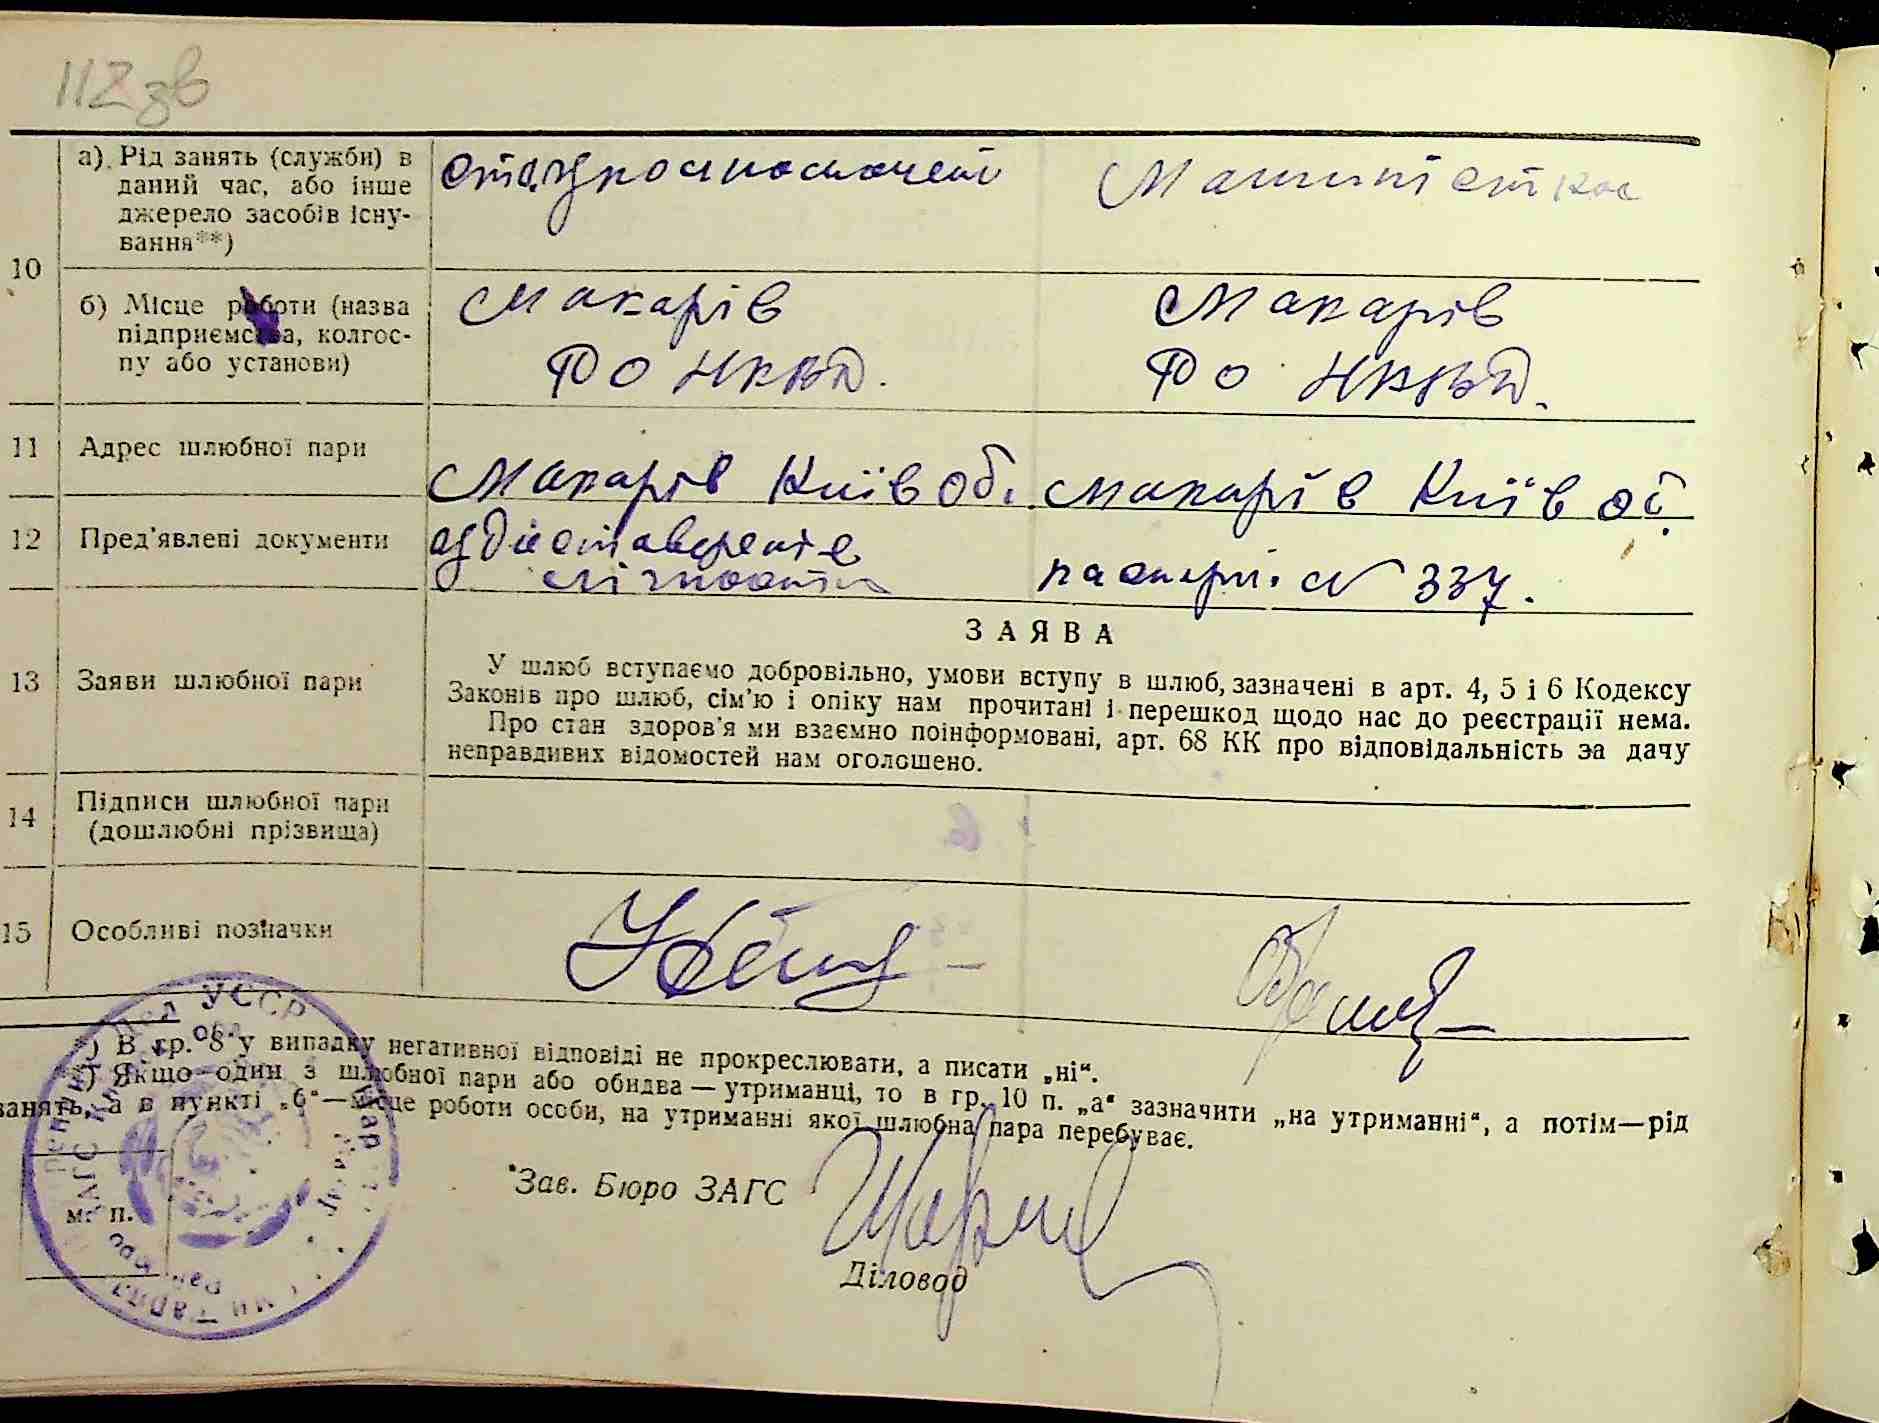 112 зв
10
а) Рід занять (служби) в
даний час, або інше
джерело засобів існу-
вання**)
Машиністка
б) Місце роботи (назва
підприємства, колгос-
пу або установи)
Макарів
РО НКВД.
Макарів
РО НКВД.
11 Адрес шлюбної пари
Макарів Київ об. Макарів Київ об.
12 Пред'явлені документи
паспорт № 337.
13 Заяви шлюбної пари
ЗАЯВА
У шлюб вступаємо добровільно, умови вступу в шлюб, зазначені в арт. 4, 5 і 6 Кодексу
Законів про шлюб, сім'ю і опіку нам прочитані і перешкод щодо нас до реєстрації нема.
Про стан здоров'я ми взаємно поінформовані, арт. 68 КК про відповідальність за дачу
неправдивих відомостей нам оголошено.
14 Підписи шлюбної пари
(дошлюбні прізвища)
15 Особливі позначки
*) В гр. 8 у випадку негативної відповіді не прокреслювати, а писати „ні“.
**) Якщо один з шлюбної пари або обидва — утриманці, то в гр. 10 п. „а“ зазначити „на утриманні“, а потім—рід
занять, а в пункті „б“—місце роботи особи, на утриманні якої шлюбна пара перебуває.
УССР
ЗАГС
м. п.
Зав. Бюро ЗАГС
Діловод